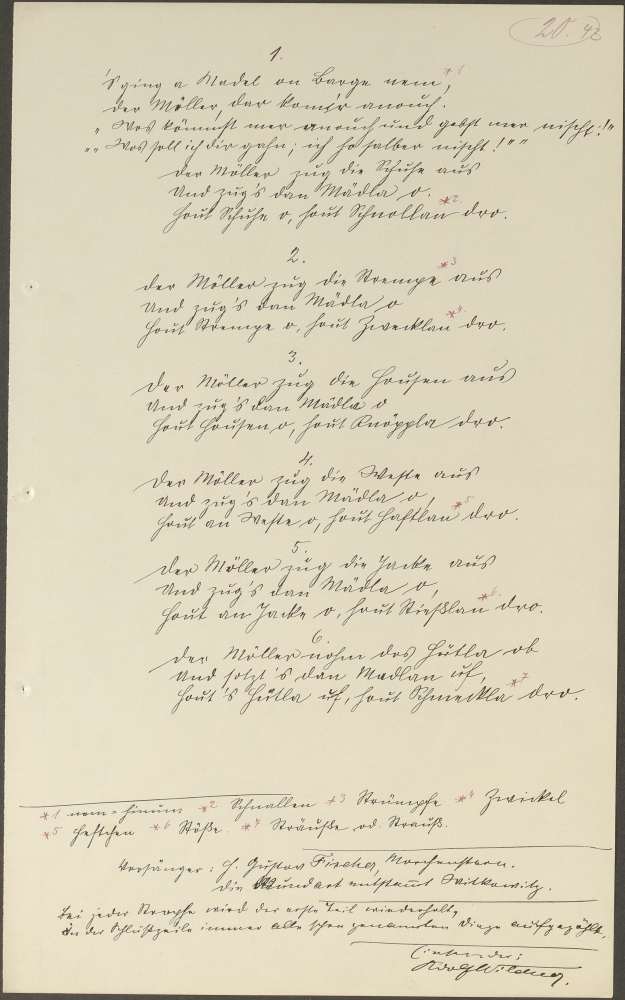 20. 42
1.
's ging a Madel on Barge nem, *1
der Möller, dar kom'r anouch.
"Wos kömmst mer anouch und gabst mer nischt!"
""Wos soll ich dir gahn; ich ho salber nischt!""
der Möller zug die Schuhe aus
Und zug's dan Mädla o.
Hout Schuhe o, hout Schnollan dro. *2
2.
der Möller zug die Strempe aus *3
Und zug's dan Mädla o
Hout Strempe o, hout Zwecklan dro. *4
3.
Der Möller zug die Housen aus
Und zug's dan Mädla o
Hout Housen o, hout Knöppla dro.
4.
Der Möller zug die Weste aus
Und zug's dan Mädla o,
Hout an Weste o, hout Haftlan dro. *5
5.
Der Möller zug die Jacke aus
Und zug's dan Mädla o,
Hout an Jacke o, hout Stießlan dro. *6
6.
Der Möller nohm dos Hütla ob
Und sotzt's dan Madlan uf,
Hout's Hütla uf, hout Schmeckla dro. *7
*1 nem = hinum *2 Schnallen *3 Strümpfe *4 Zwickel
*5 Heftchen *6 Stöße. *7 Sträuße od. Strauß.
Vorsänger: H. Gustav Fischer, Morchenstern.
die Mundart entstamt Witkowitz.
Bei jeder Strophe wird der erste Teil wiederholt,
In der Schlußzeile immer alle schon genannten Dinge aufgezählt.
Einsender:
Adolf Wildner.